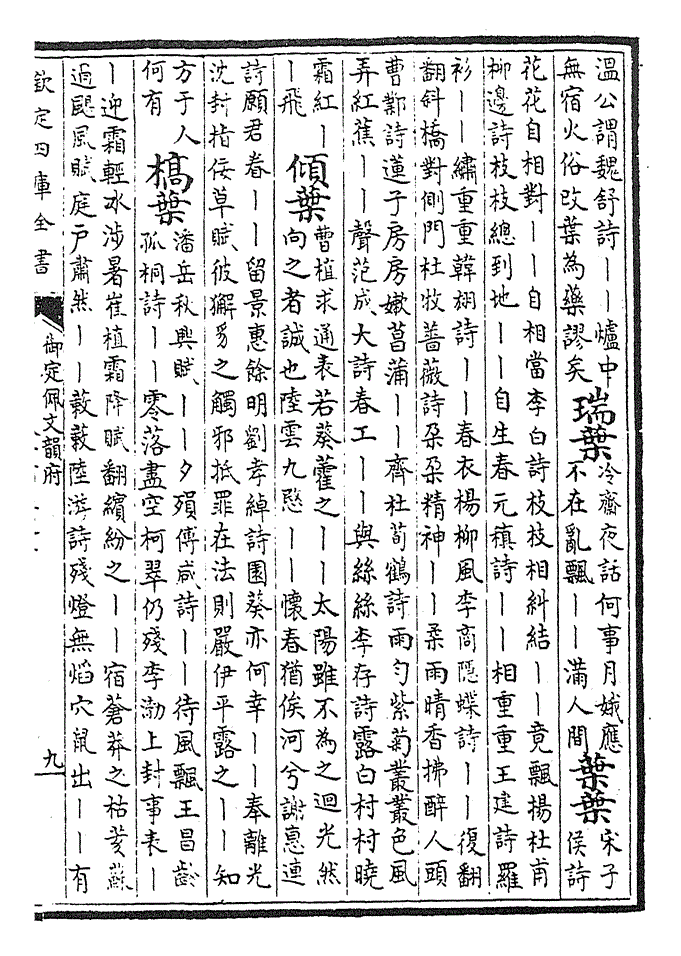 溫公謂魏舒詩——爐中
無宿火俗改葉為藥謬矣
瑞葉
冷齋夜話何事月娥應
不在亂飄——滿人間
葉葉
宋子
侯詩
花花自相對——自相當李白詩枝枝相糾結——竟飄揚杜甫
柳邊詩枝枝總到地——自生春元稹詩——相重重王建詩羅
衫——繡重重韓翃詩——春衣楊柳風李商隱蝶詩——復翻
翻斜橋對側門杜牧薔薇詩朶朶精神——柔雨晴香拂醉人頭
曹鄴詩蓮子房房嫩菖蒲——齊杜荀鶴詩雨勻紫菊叢叢色風
弄紅蕉——聲范成大詩春工——與絲絲李存詩露白村村曉
霜紅—
—飛
傾葉
曹植求通表若葵藿之——太陽雖不為之迴光然
向之者誠也陸雲九愍——懷春猶俟河兮謝惠連
詩願君眷——留景惠餘明劉孝綽詩園葵亦何幸——奉離光
沈封指佞草賦彼獬豸之觸邪抵罪在法則嚴伊平露之——知
方于人
何有
槁葉
潘岳秋興賦——夕殞傅咸詩——待風飄王昌齡
孤桐詩——零落盡空柯翠仍殘李渤上封事表—
—迎霜輕水涉暑崔植霜降賦翻繽紛之——宿蒼莽之枯荄蘇
過颶風賦庭戶肅然——蔌蔌陸游詩殘燈無焰穴鼠出——有
欽定四庫全書
御定佩文韻府
九